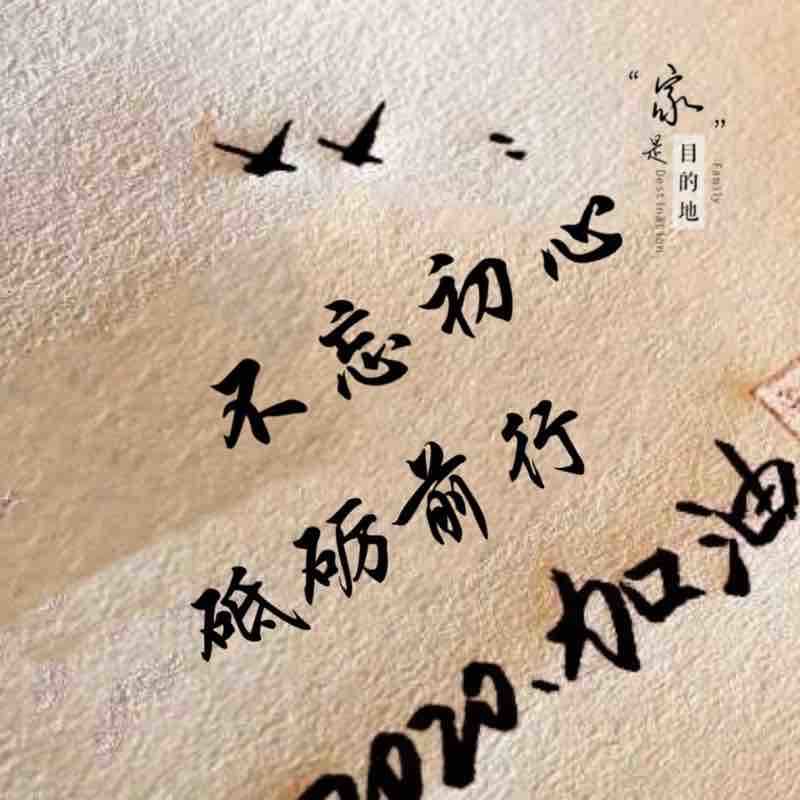 “家”
是
目的地
Family
Destination
不忘初心
砥砺前行
2020、加油